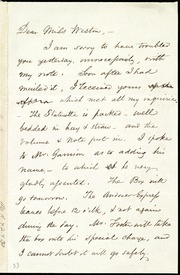 Dear Miss Weston,—
I am sorry to have troubled
you yesterday, unnecessarily, with
my note. Soon after I had
mailed it, I received yours
which met all my inquiries.
— The Statuette is packed — well
bedded in hay & straw — and the
volume & note put in. I spoke
to Mr. Garrison as to adding his
name, — to which he very
gladly assented. The Box will
go tomorrow. The
leaves before 12 o'clk, & not again
during the day. Mr.
the box into his special charge, and
I cannot doubt it will go safely,